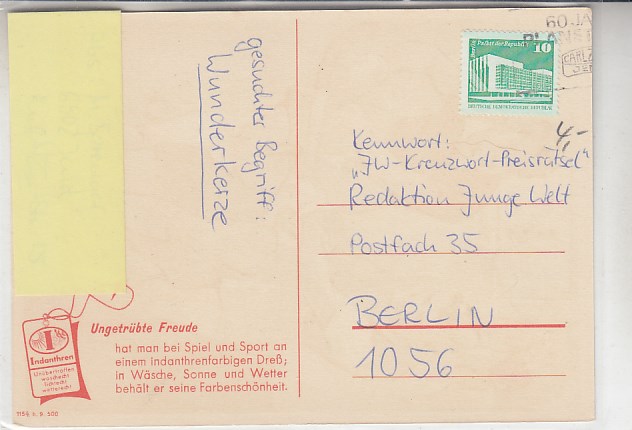 gesuchter Begriff:
Wunderkerze
60 JA
PLANE
CARL Z
JE
Berlin Palast der Republik
10
DEUTSCHE DEMOKRATISCHE REPUBLIK
4,-
Kennwort:
„JW-Kreuzwort-Preisrätsel"
Redaktion Junge Welt
Postfach 35
BERLIN
1056
I
Indanthren
Unübertroffen
waschecht
lichtecht
wetterecht
Ungetrübte Freude
hat man bei Spiel und Sport an
einem indanthrenfarbigen Dreß;
in Wäsche, Sonne und Wetter
behält er seine Farbenschönheit.